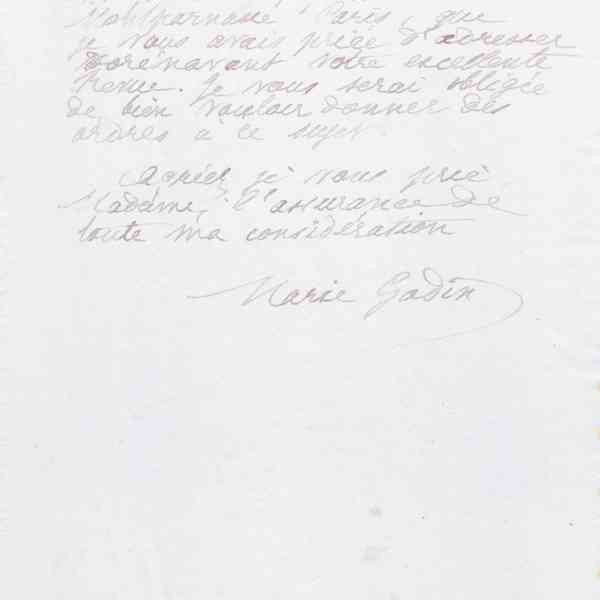 Montparnasse Paris, que
je vous avais priée d'adresser
dorénavant votre excellente
revue. Je vous serai obligée
de bien vouloir donner des
ordres à ce sujet.
Agréez, je vous prie,
Madame, l'assurance de
toute ma considération
Marie Godin